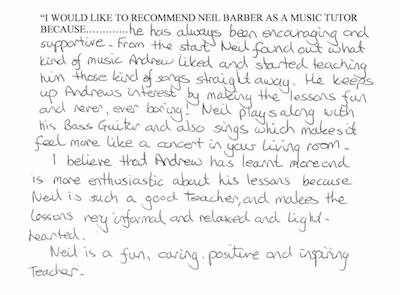 “I WOULD LIKE TO RECOMMEND NEIL BARBER AS A MUSIC TUTOR
BECAUSE.............he has always been encouraging and
supportive. From the start Neil found out what
kind of music Andrew liked and started teaching
him those kind of songs straight away. He keeps
up Andrews interest by making the lessons fun
and never, ever boring. Neil plays along with
his Bass Guitar and also sings which makes it
feel more like a concert in your living room.
I believe that Andrew has learnt more and
is more enthusiastic about his lessons because
Neil is such a good teacher, and makes the
lessons very informal and relaxed and light-
hearted.
Neil is a fun, caring, positive and inspiring
Teacher.